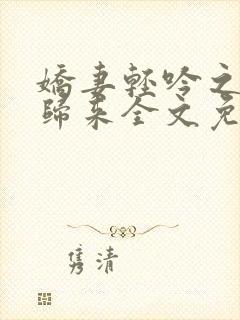 嬌妻輕吟之
歸來全文免
隽清